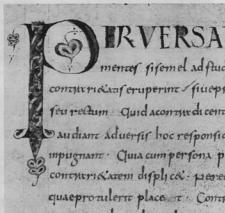 PERVERSA
mentes si semel ad stud
contrarietatis eruperint / si ve p
seu rectum. Quid a contradicent
audiant adversis hoc responsio
impugnant. Quia cum persona p
contrarietatem displic&. p
quae protulerit place t. Cont